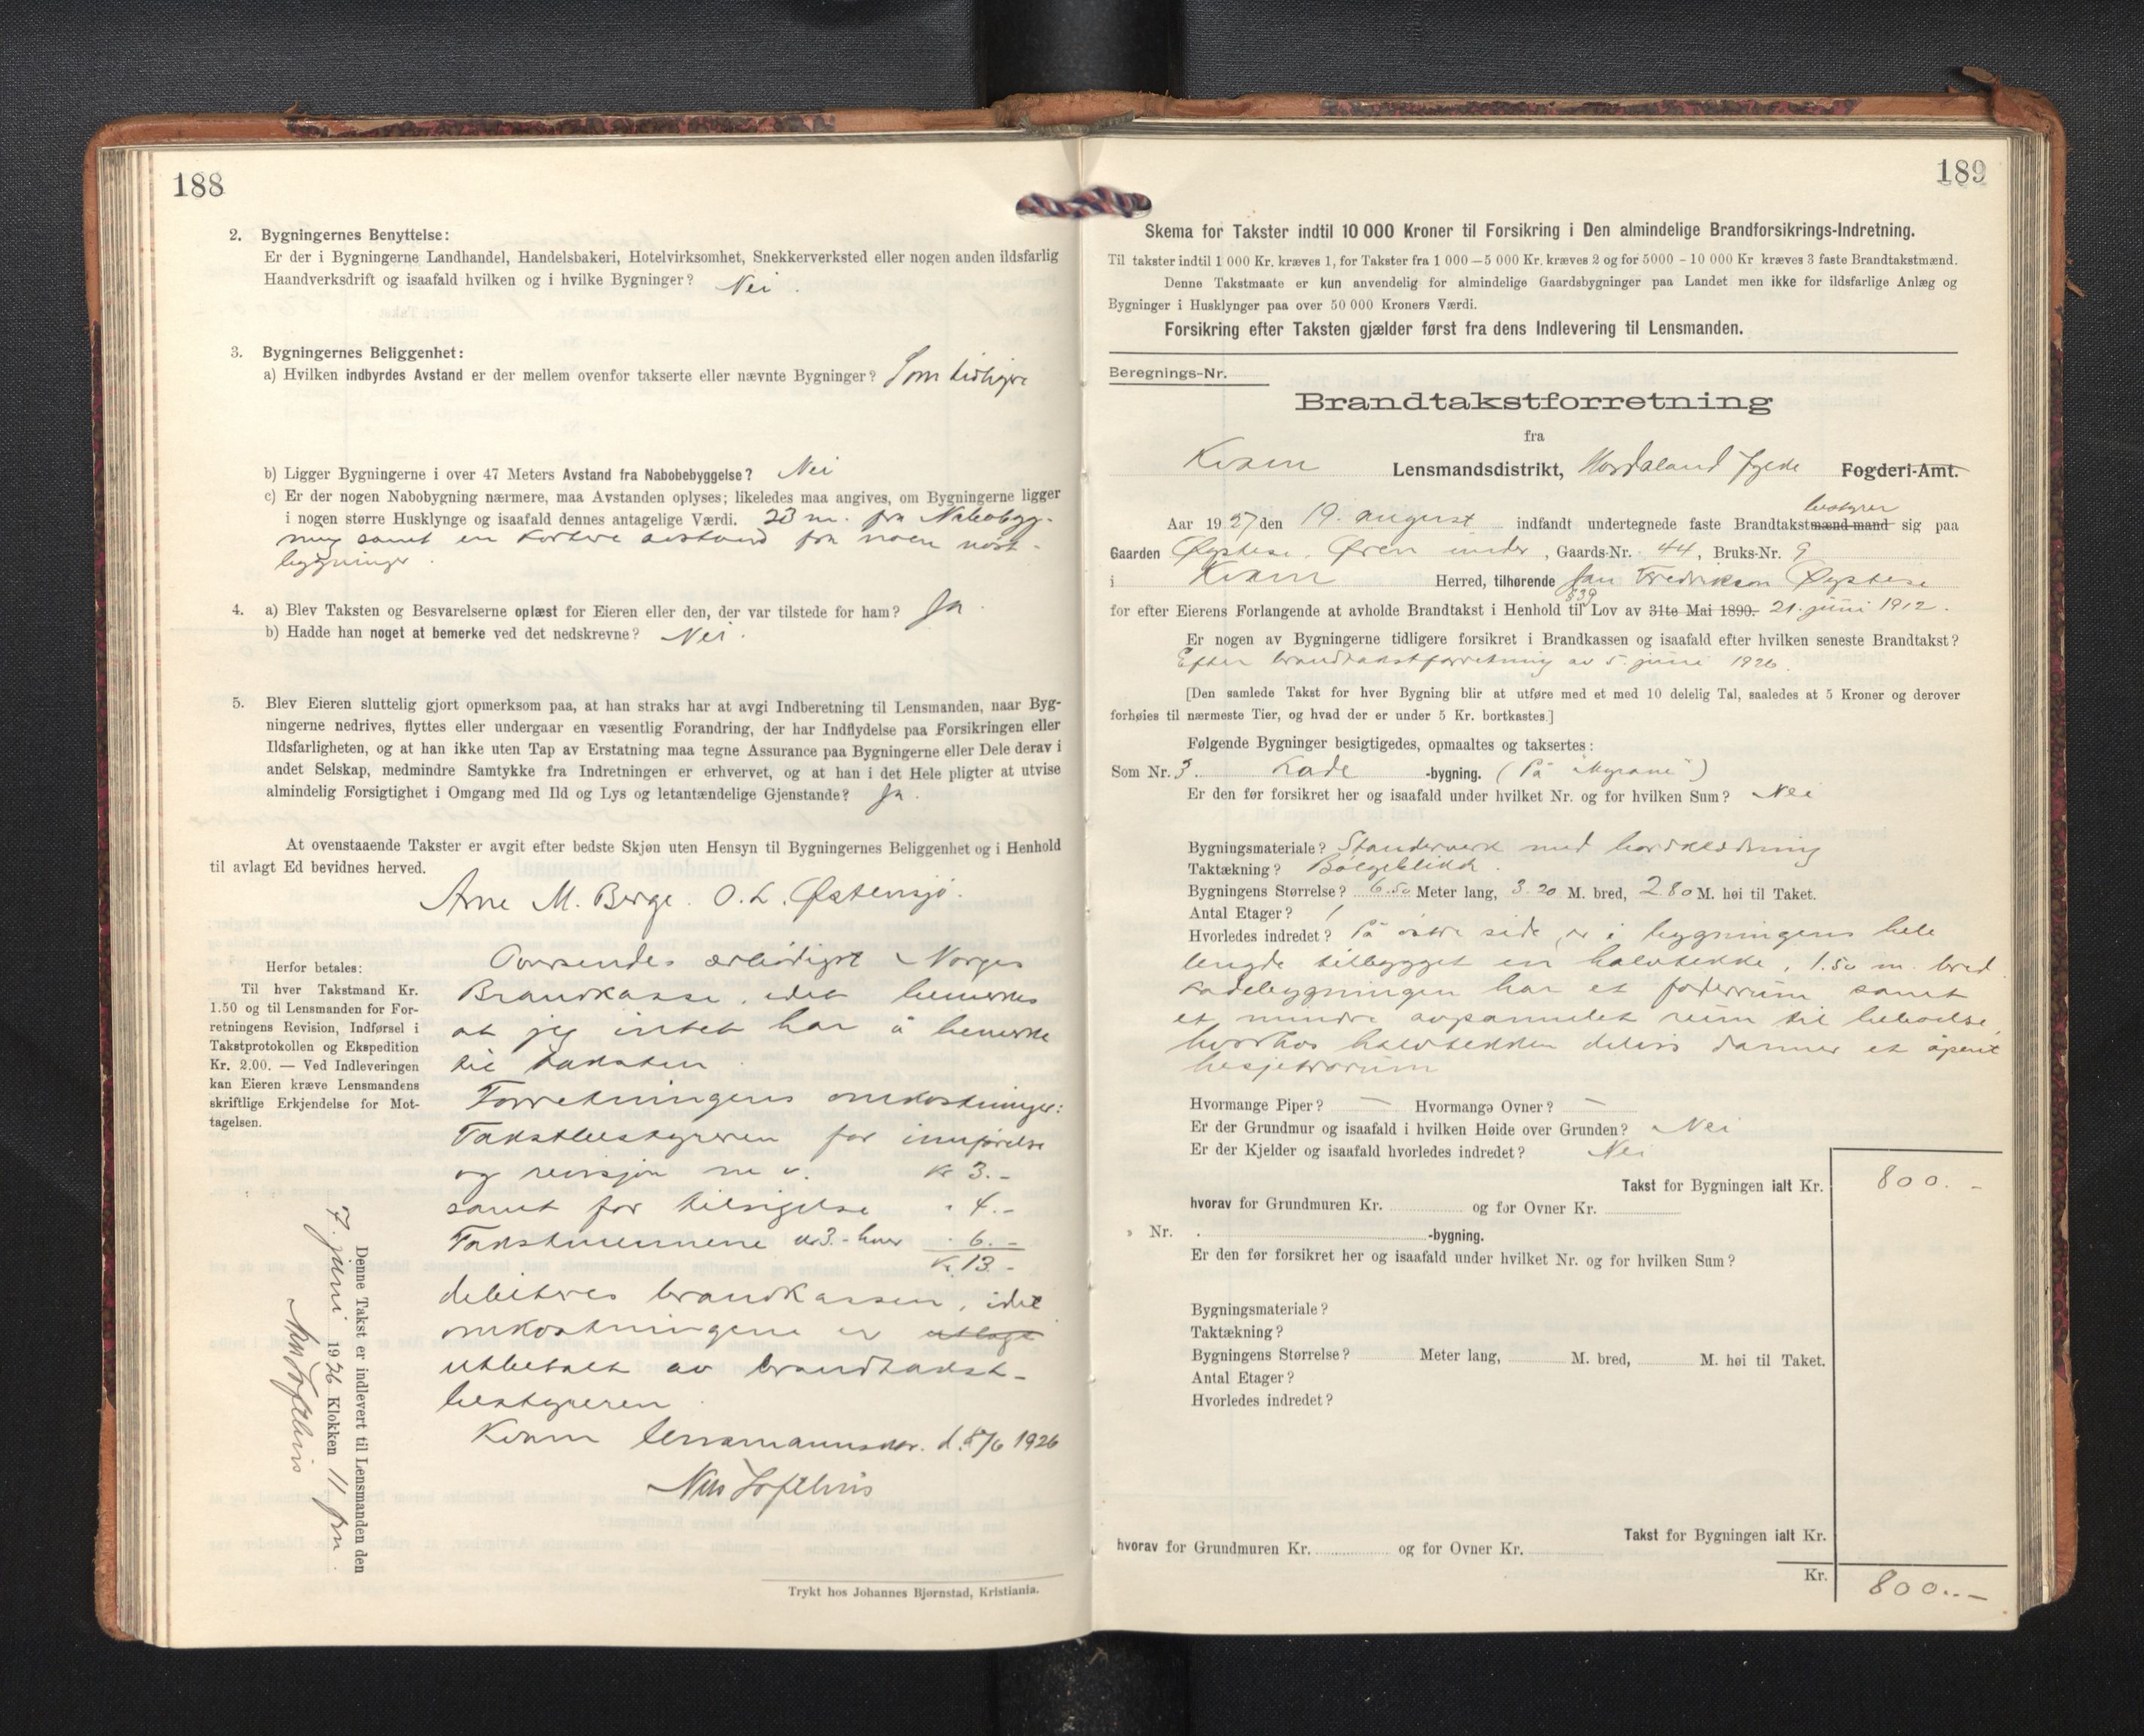 188
2. Bygningernes Benyttelse:
Er der i Bygningerne Landhandel, Handelsbakeri, Hotelvirksomhet, Snekkerverksted eller nogen anden ildsfarlig
Haandverksdrift og isaafald hvilken og i hvilke Bygninger? Nei.
3. Bygningernes Beliggenhet:
a) Hvilken indbyrdes Avstand er der mellem ovenfor takserte eller nævnte Bygninger? Som tidligere
b) Ligger Bygningerne i over 47 Meters Avstand fra Nabobebyggelse? Nei
c) Er der nogen Nabobygning nærmere, maa Avstanden oplyses; likeledes maa angives, om Bygningerne ligger
i nogen større Husklynge og isaafald dennes antagelige Værdi. 23 m. fra Nabobygg-
ning samt en kortere avstand fra noen nöst-
bygninger.
4. a) Blev Taksten og Besvarelserne oplæst for Eieren eller den, der var tilstede for ham? Ja.
b) Hadde han noget at bemerke ved det nedskrevne? Nei.
5. Blev Eieren sluttelig gjort opmerksom paa, at han straks har at avgi Indberetning til Lensmanden, naar Byg-
ningerne nedrives, flyttes eller undergaar en væsentlig Forandring, der har Indflydelse paa Forsikringen eller
Ildsfarligheten, og at han ikke uten Tap av Erstatning maa tegne Assurance paa Bygningerne eller Dele derav i
andet Selskap, medmindre Samtykke fra Indretningen er erhvervet, og at han i det Hele pligter at utvise
almindelig Forsigtighet i Omgang med Ild og Lys og letantændelige Gjenstande? Ja.
At ovenstaaende Takster er avgit efter bedste Skjøn uten Hensyn til Bygningernes Beliggenhet og i Henhold
til avlagt Ed bevidnes herved.
Arne M. Berge. O. L. Østensjö.
Herfor betales:
Til hver Takstmand Kr.
1.50 og til Lensmanden for For-
retningens Revision, Indførsel i
Takstprotokollen og Ekspedition
Kr. 2.00. — Ved Indleveringen
kan Eieren kræve Lensmandens
skriftlige Erkjendelse for Mot-
tagelsen.
Oversendes ærbödigst Norges
Brandkasse, idet bemerkes
at jeg intet har å bemerke
til taksten.
Forretningens omkostninger:
Takstbestyreren for innförelse
og revisjon m.v. kr 3.-
samt for tilsigelse " 4.-
Takstmennene à 3.- hver " 6.-
Kr. 13.-
debiteres brandkassen, idet
omkostningene er utlagt
utbetalt av brandtakst-
bestyreren.
Kvam lensmannsktr. d. 8/6 1926
Nils Loftshus
Denne Takst er indlevert til Lensmanden den
7. juni 1926 Klokken 11 fm.
Nils Loftshus
Trykt hos Johannes Bjørnstad, Kristiania.
189
Skema for Takster indtil 10 000 Kroner til Forsikring i Den almindelige Brandforsikrings-Indretning.
Til takster indtil 1 000 Kr. kræves 1, for Takster fra 1 000—5 000 Kr. kræves 2 og for 5000 - 10 000 Kr kræves 3 faste Brandtakstmænd.
Denne Takstmaate er kun anvendelig for almindelige Gaardsbygninger paa Landet men ikke for ildsfarlige Anlæg og
Bygninger i Husklynger paa over 50 000 Kroners Værdi.
Forsikring efter Taksten gjælder først fra dens Indlevering til Lensmanden.
Beregnings-Nr.
Brandtakstforretning
fra
Kvam Lensmandsdistrikt, Hordaland fylke Fogderi-Amt.
Aar 1927 den 19. august indfandt undertegnede faste Brandtakstmænd mand bestyrer sig paa
Gaarden Øystese, Øren under, Gaards-Nr. 44, Bruks-Nr. 9
i Kvam Herred, tilhørende Jan Fredriksen Øystese
for efter Eierens Forlangende at avholde Brandtakst i Henhold til § 39 Lov av 31te Mai 1890. 21. juni 1912.
Er nogen av Bygningerne tidligere forsikret i Brandkassen og isaafald efter hvilken seneste Brandtakst?
Efter brandtakstforretning av 5. juni 1926.
[Den samlede Takst for hver Bygning blir at utføre med et med 10 delelig Tal, saaledes at 5 Kroner og derover
forhøies til nærmeste Tier, og hvad der er under 5 Kr. bortkastes.]
Følgende Bygninger besigtigedes, opmaaltes og taksertes:
Som Nr. 3. Lade -bygning. (På "Myrane")
Er den før forsikret her og isaafald under hvilket Nr. og for hvilken Sum? Nei
Bygningsmateriale? Standerverk med bordklædning
Taktækning? Bölgeblikk.
Bygningens Størrelse? 6.50 Meter lang, 3.20 M. bred, 2.80 M. høi til Taket.
Antal Etager? 1
Hvorledes indredet? På östre side er i bygningens hele
lengde tilbygget en halvtekke, 1.50 m. bred.
Ladebygningen har et foderrum samt
et mindre avpannelet rum til beboelse,
hvorhos halvtekken delvis danner et åpent
Hvormange Piper? — Hvormange Ovner? —
Er der Grundmur og isaafald i hvilken Høide over Grunden? Nei
Er der Kjelder og isaafald hvorledes indredet? Nei
Takst for Bygningen ialt Kr. 800.-
hvorav for Grundmuren Kr. og for Ovner Kr.
» Nr. -bygning.
Er den før forsikret her og isaafald under hvilket Nr. og for hvilken Sum?
Bygningsmateriale?
Taktækning?
Bygningens Størrelse? Meter lang, M. bred, M. høi til Taket.
Antal Etager?
Hvorledes indredet?
Takst for Bygningen ialt Kr.
hvorav for Grundmuren Kr. og for Ovner Kr.
Kr. 800.--